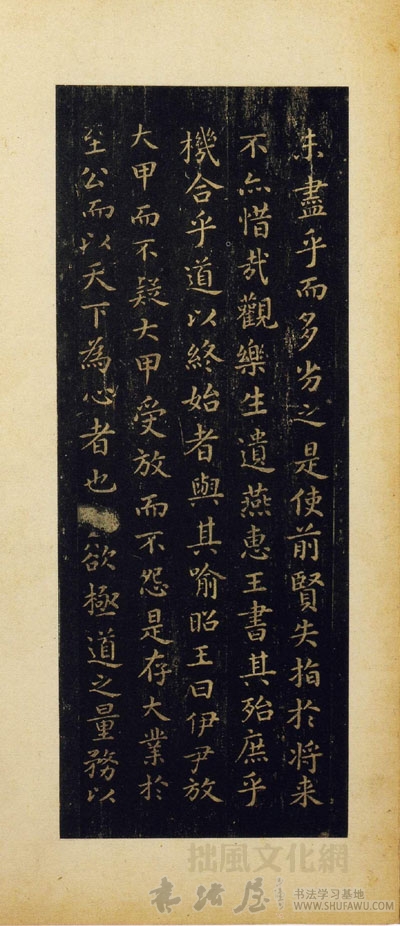 未盡乎而多劣之是使前賢失指於将来
不亦惜哉觀樂生遺燕惠王書其殆庶乎
機合乎道以終始者與其喻昭王曰伊尹放
大甲而不疑大甲受放而不怨是存大業於
至公而以天下為心者也欲極道之量務以
拙風文化網
书法学习基地
WWW.SHUFAWU.COM